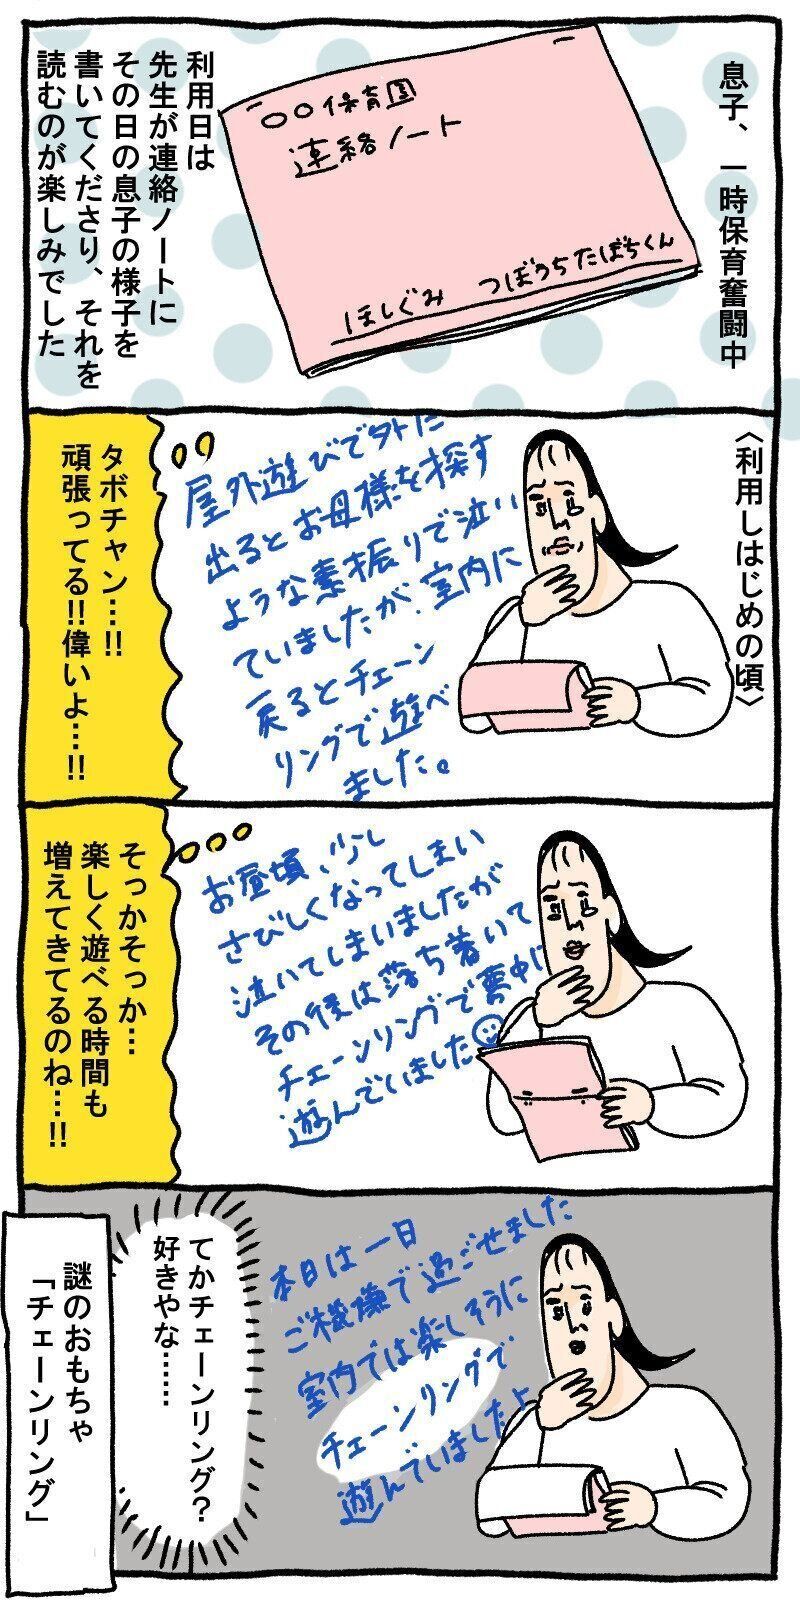 息子、一時保育奮闘中
〇〇保育園
連絡ノート
ほしぐみ つぼうちたぼちくん
利用日は
先生が連絡ノートに
その日の息子の様子を
書いてくださり、それを
読むのが楽しみでした
〈利用しはじめの頃〉
屋外遊びで外に
出るとお母様を探す
ような素振りで泣い
ていましたが、室内に
戻るとチェーン
リングで遊べ
ました。
タボチャン…!!
頑張ってる!!偉いよ…!!
お昼頃、少し
さびしくなってしまい
泣いてしまいましたが
その後は落ち着いて
チェーンリングで夢中に
遊んでいました
そっかそっか…
楽しく遊べる時間も
増えてきてるのね…!!
本日は一日
ご機嫌で過ごせました
室内では楽しそうに
チェーンリングで
遊んでいましたよ
てかチェーンリング?
好きやな……
謎のおもちゃ
「チェーンリング」